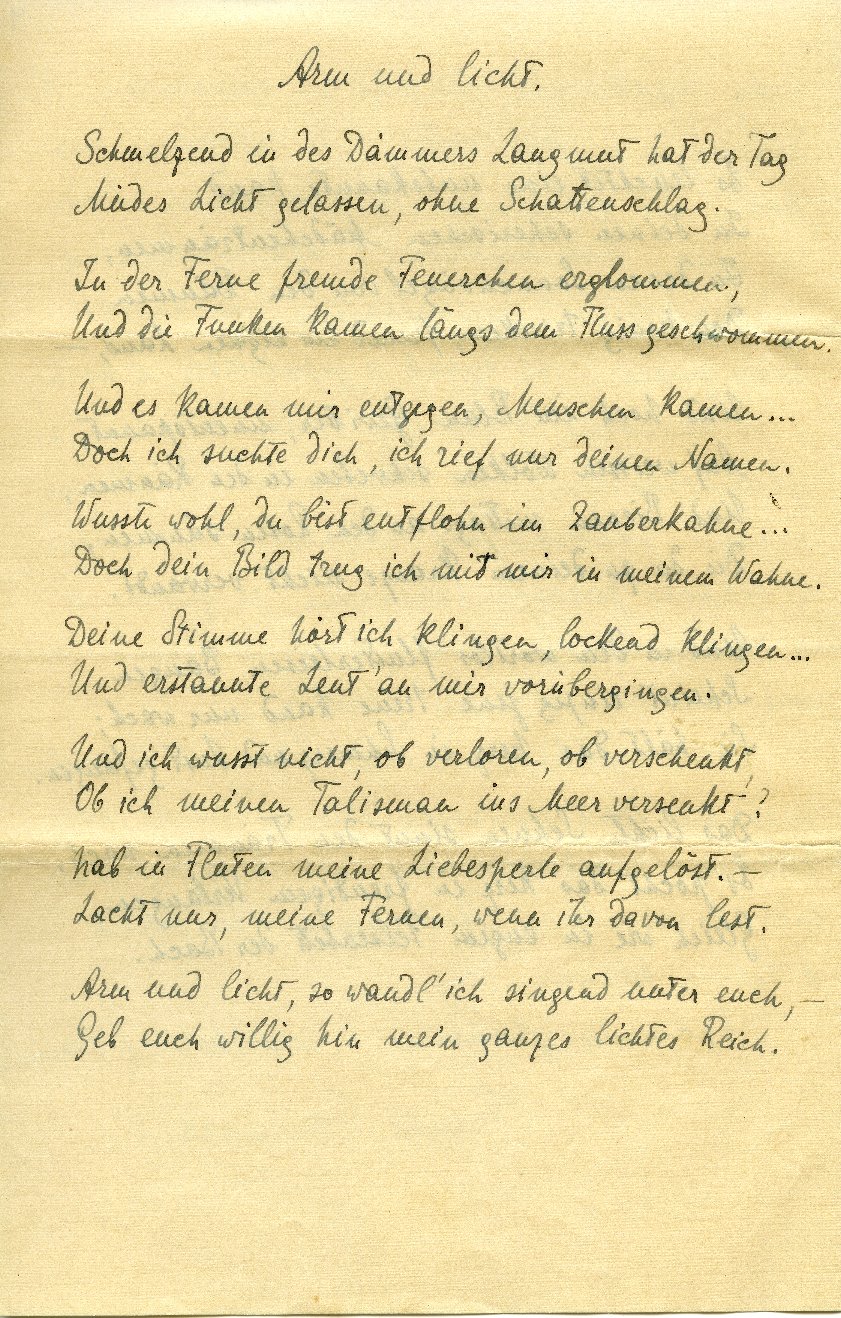 Arm und licht.
Schmelzend in des Dämmers Langmut hat der Tag
Müdes Licht gelassen, ohne Schattenschlag.
In der Ferne fremde Feuerchen erglommen,
Und die Funken kamen längs dem Fluss geschwommen.
Und es kamen mir entgegen, Menschen kamen...
Doch ich suchte dich, ich rief nur deinen Namen.
Wusste wohl, du bist entflohn im Zauberkahne...
Doch dein Bild trug ich mit mir in meinem Wahne.
Deine Stimme hört ich klingen, lockend klingen...
Und erstaunte Leut' an mir vorübergingen.
Und ich wusst nicht, ob verloren, ob verschenkt,
Ob ich meinen Talisman ins Meer versenkt?
Hab in Fluten meine Liebesperle aufgelöst. –
Lacht nur, meine Fernen, wenn ihr davon lest.
Arm und licht, so wandl' ich singend unter euch, –
Geb euch willig hin mein ganzes lichtes Reich.